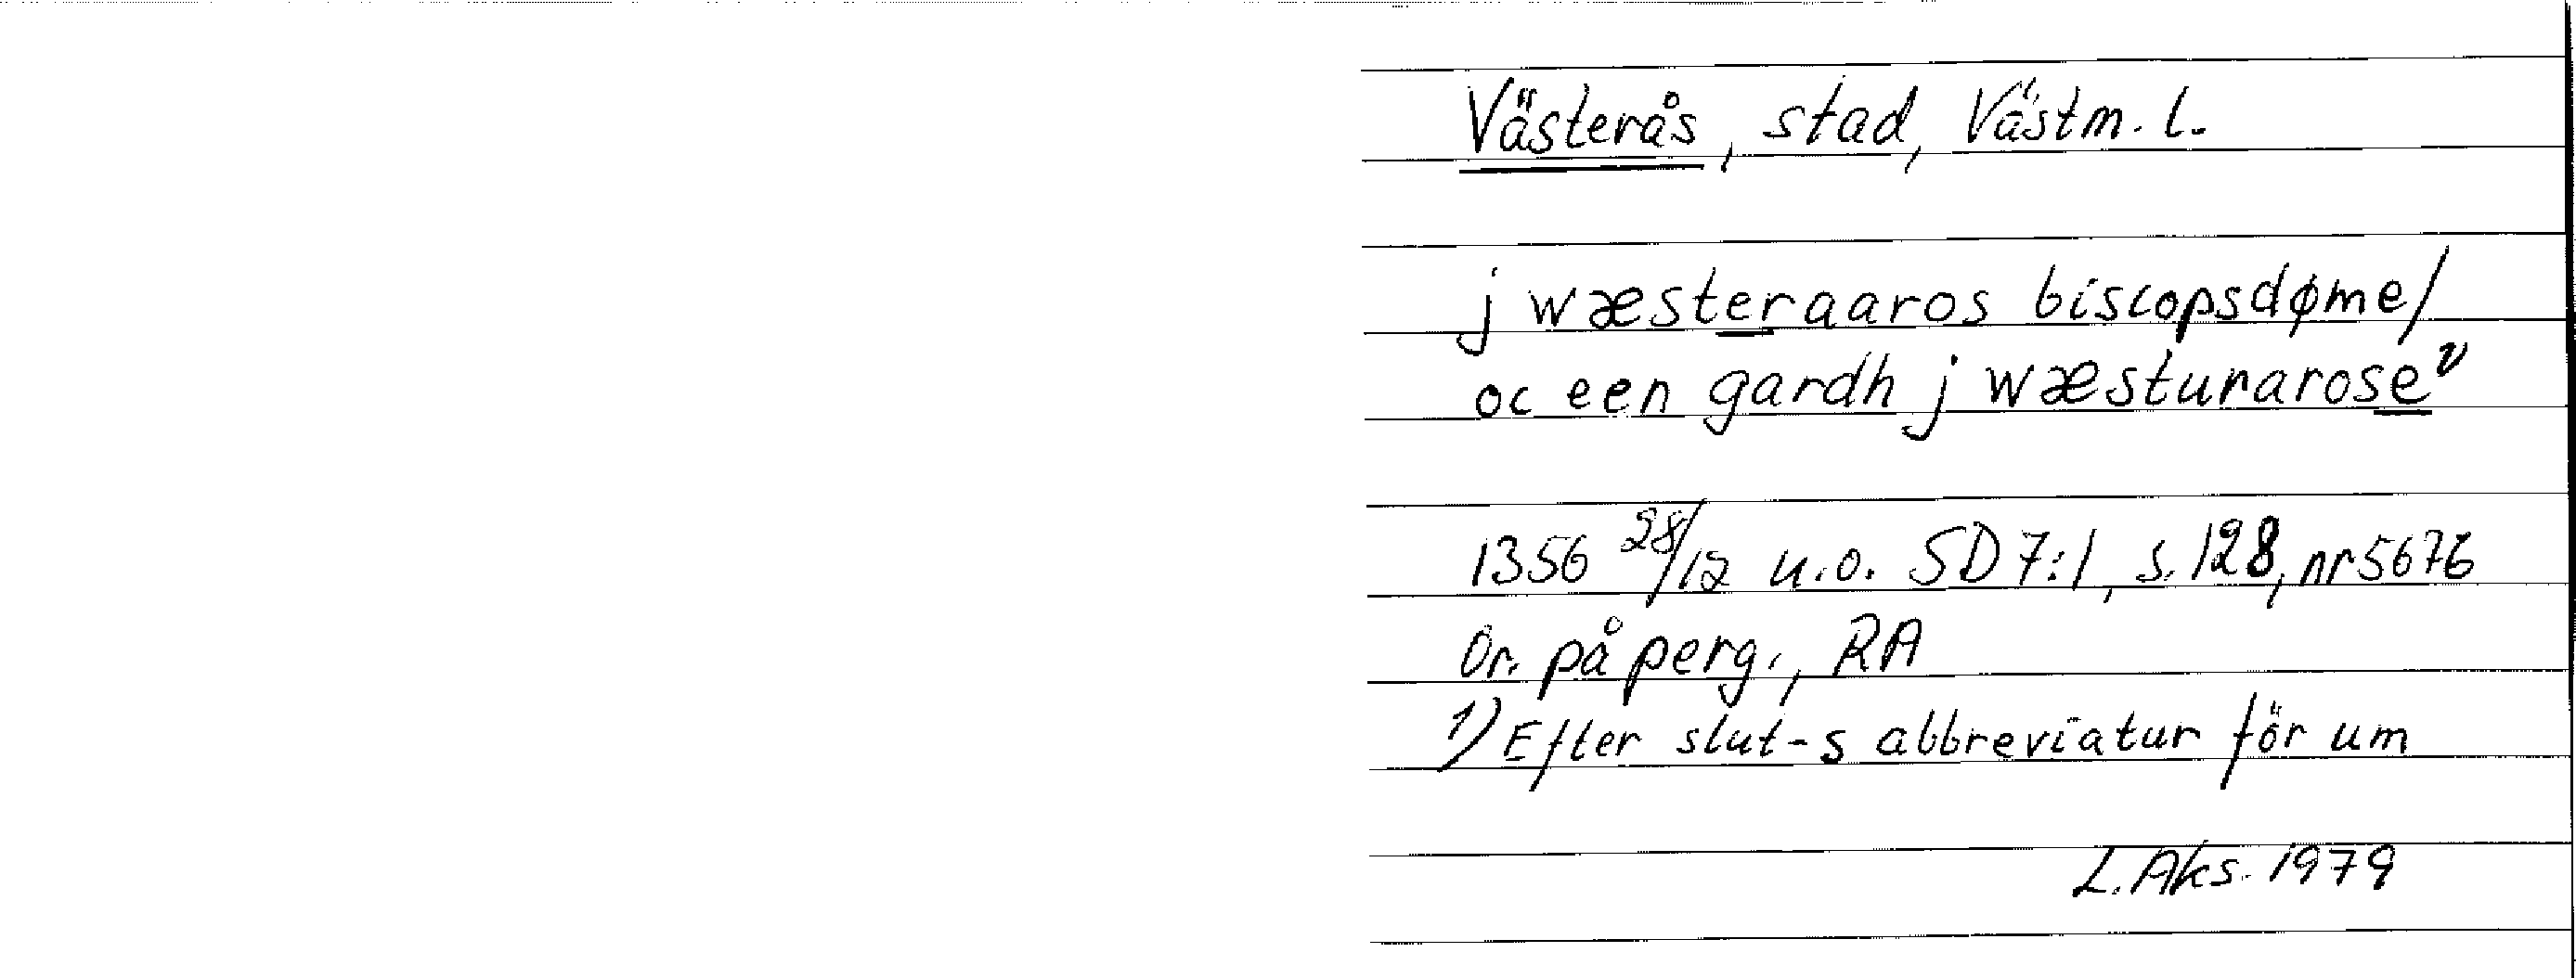 Västerås, stad, Västm. l.
j wæsteraaros biscopsdøme/
oc een gardh j wæsturarose 1)
1356 28/12 u.o. SD 7:1, s. 128, nr 5676
Or. på perg., RA
1) Efter slut-s abbreviatur för um
L. Aks. 1979